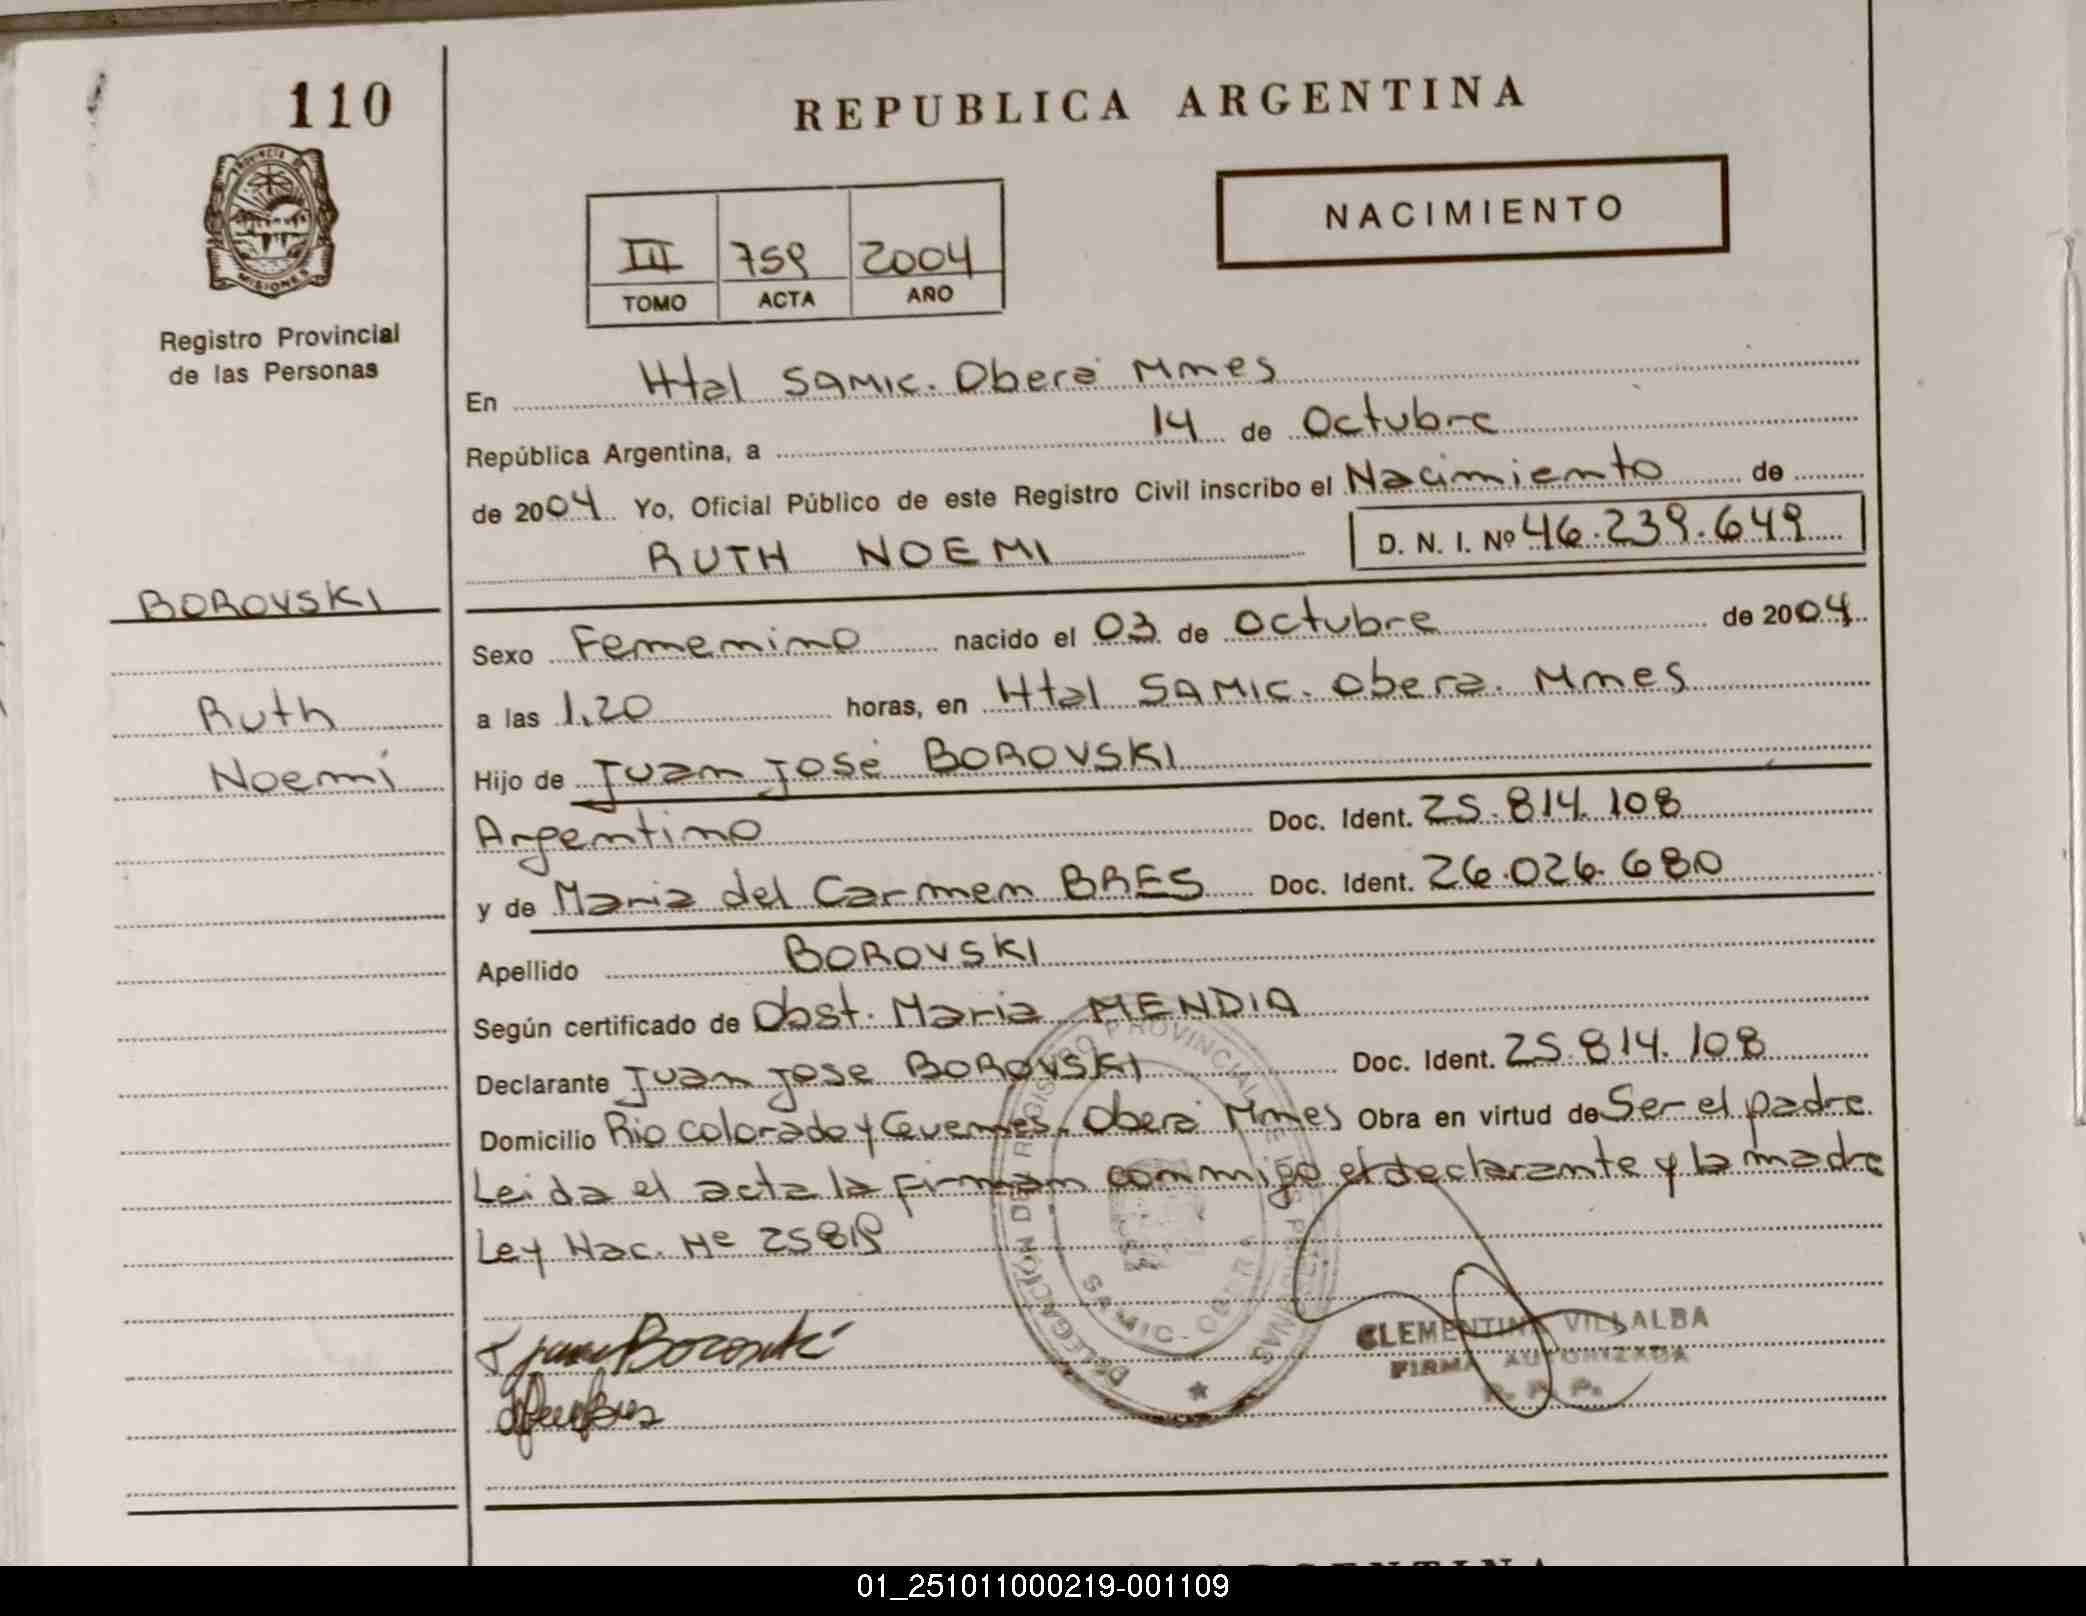 110
REPUBLICA ARGENTINA
PROVINCIA DE
MISIONES
Registro Provincial
de las Personas
NACIMIENTO
III 759 2004
TOMO ACTA AÑO
En Htal SAMIC. Oberá Mnes
República Argentina, a 14 de Octubre
de 2004 Yo, Oficial Público de este Registro Civil inscribo el Nacimiento de
RUTH NOEMI D. N. I. Nº 46.239.649
BOROVSKI
Ruth
Noemí
Sexo Femenino nacido el 03 de Octubre de 2004
a las 1,20 horas, en Htal SAMIC. Obera. Mnes
Hijo de Juan José BOROVSKI
Argentino Doc. Ident. 25.814.108
y de Maria del Carmen BRES Doc. Ident. 26.026.680
Apellido BOROVSKI
Según certificado de Obst. Maria MENDIA
Declarante Juan Jose BOROVSKI Doc. Ident. 25.814.108
Domicilio Rio Colorado y Oberá Mnes Obra en virtud de Ser el padre
Leida el acta la firman conmigo el declarante y la madre
Ley Nac. Nº 25819
DELEGACIÓN DEL REGISTRO PROVINCIAL DE LAS PERSONAS
SAMIC - OBERA
CLEMENTINA VILLALBA
FIRMA AUTORIZADA
R. P. P.
ARGENTINA
01_251011000219-001109